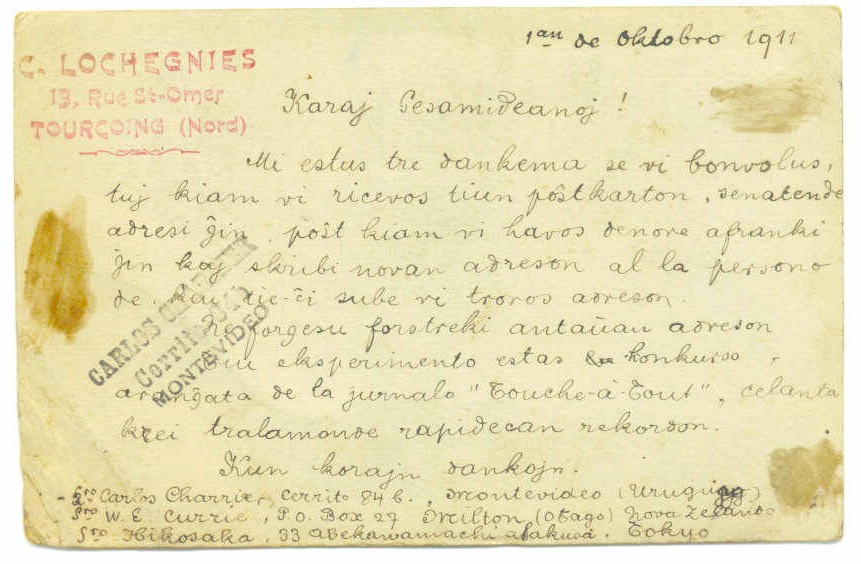 1an de Oktobro 1911
C. LOCHEGNIES
13, Rue St-Omer
TOURCOING (Nord)
Karaj Gesamideanoj !
Mi estus tre dankema se vi bonvolus,
tuj kiam vi ricevos tiun poŝtkarton, senatende
adresi ĝin, post kiam vi havos denove afranki
ĝin kaj skribi novan adreson al la persono
de kiu tie-ĉi sube vi trovos adreson.
Ne forgesu forstreki antaŭan adreson
Tiu eksperimento estas konkurso,
aranĝata de la ĵurnalo "Touche-à-Tout", celanta
krei tralamonde rapidecan rekordon.
Kun korajn dankojn.
CARLOS CHARRIER
Cerrito
MONTEVIDEO
- Sro Carlos Charrier, Cerrito 84 b., Montevideo (Uruguay)
Sro W. E. Currie, P.O. Box 27 Milton (Otago) Nova Zelando
Sro Hikosaka, 33 Abekawamachi Asakusa. Tokyo